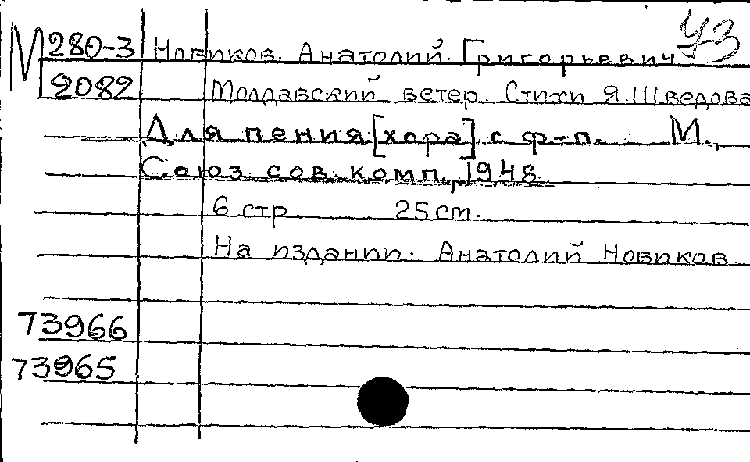 УЗ
М 280-3 Новиков Анатолий Григорьевич
2082 Молдавский ветер. Стихи Я. Шведова
Для пения [хора] с ф-п. М.,
Союз сов. комп., 1948.
6 стр. 25 cm.
На издании: Анатолий Новиков
73966
73965